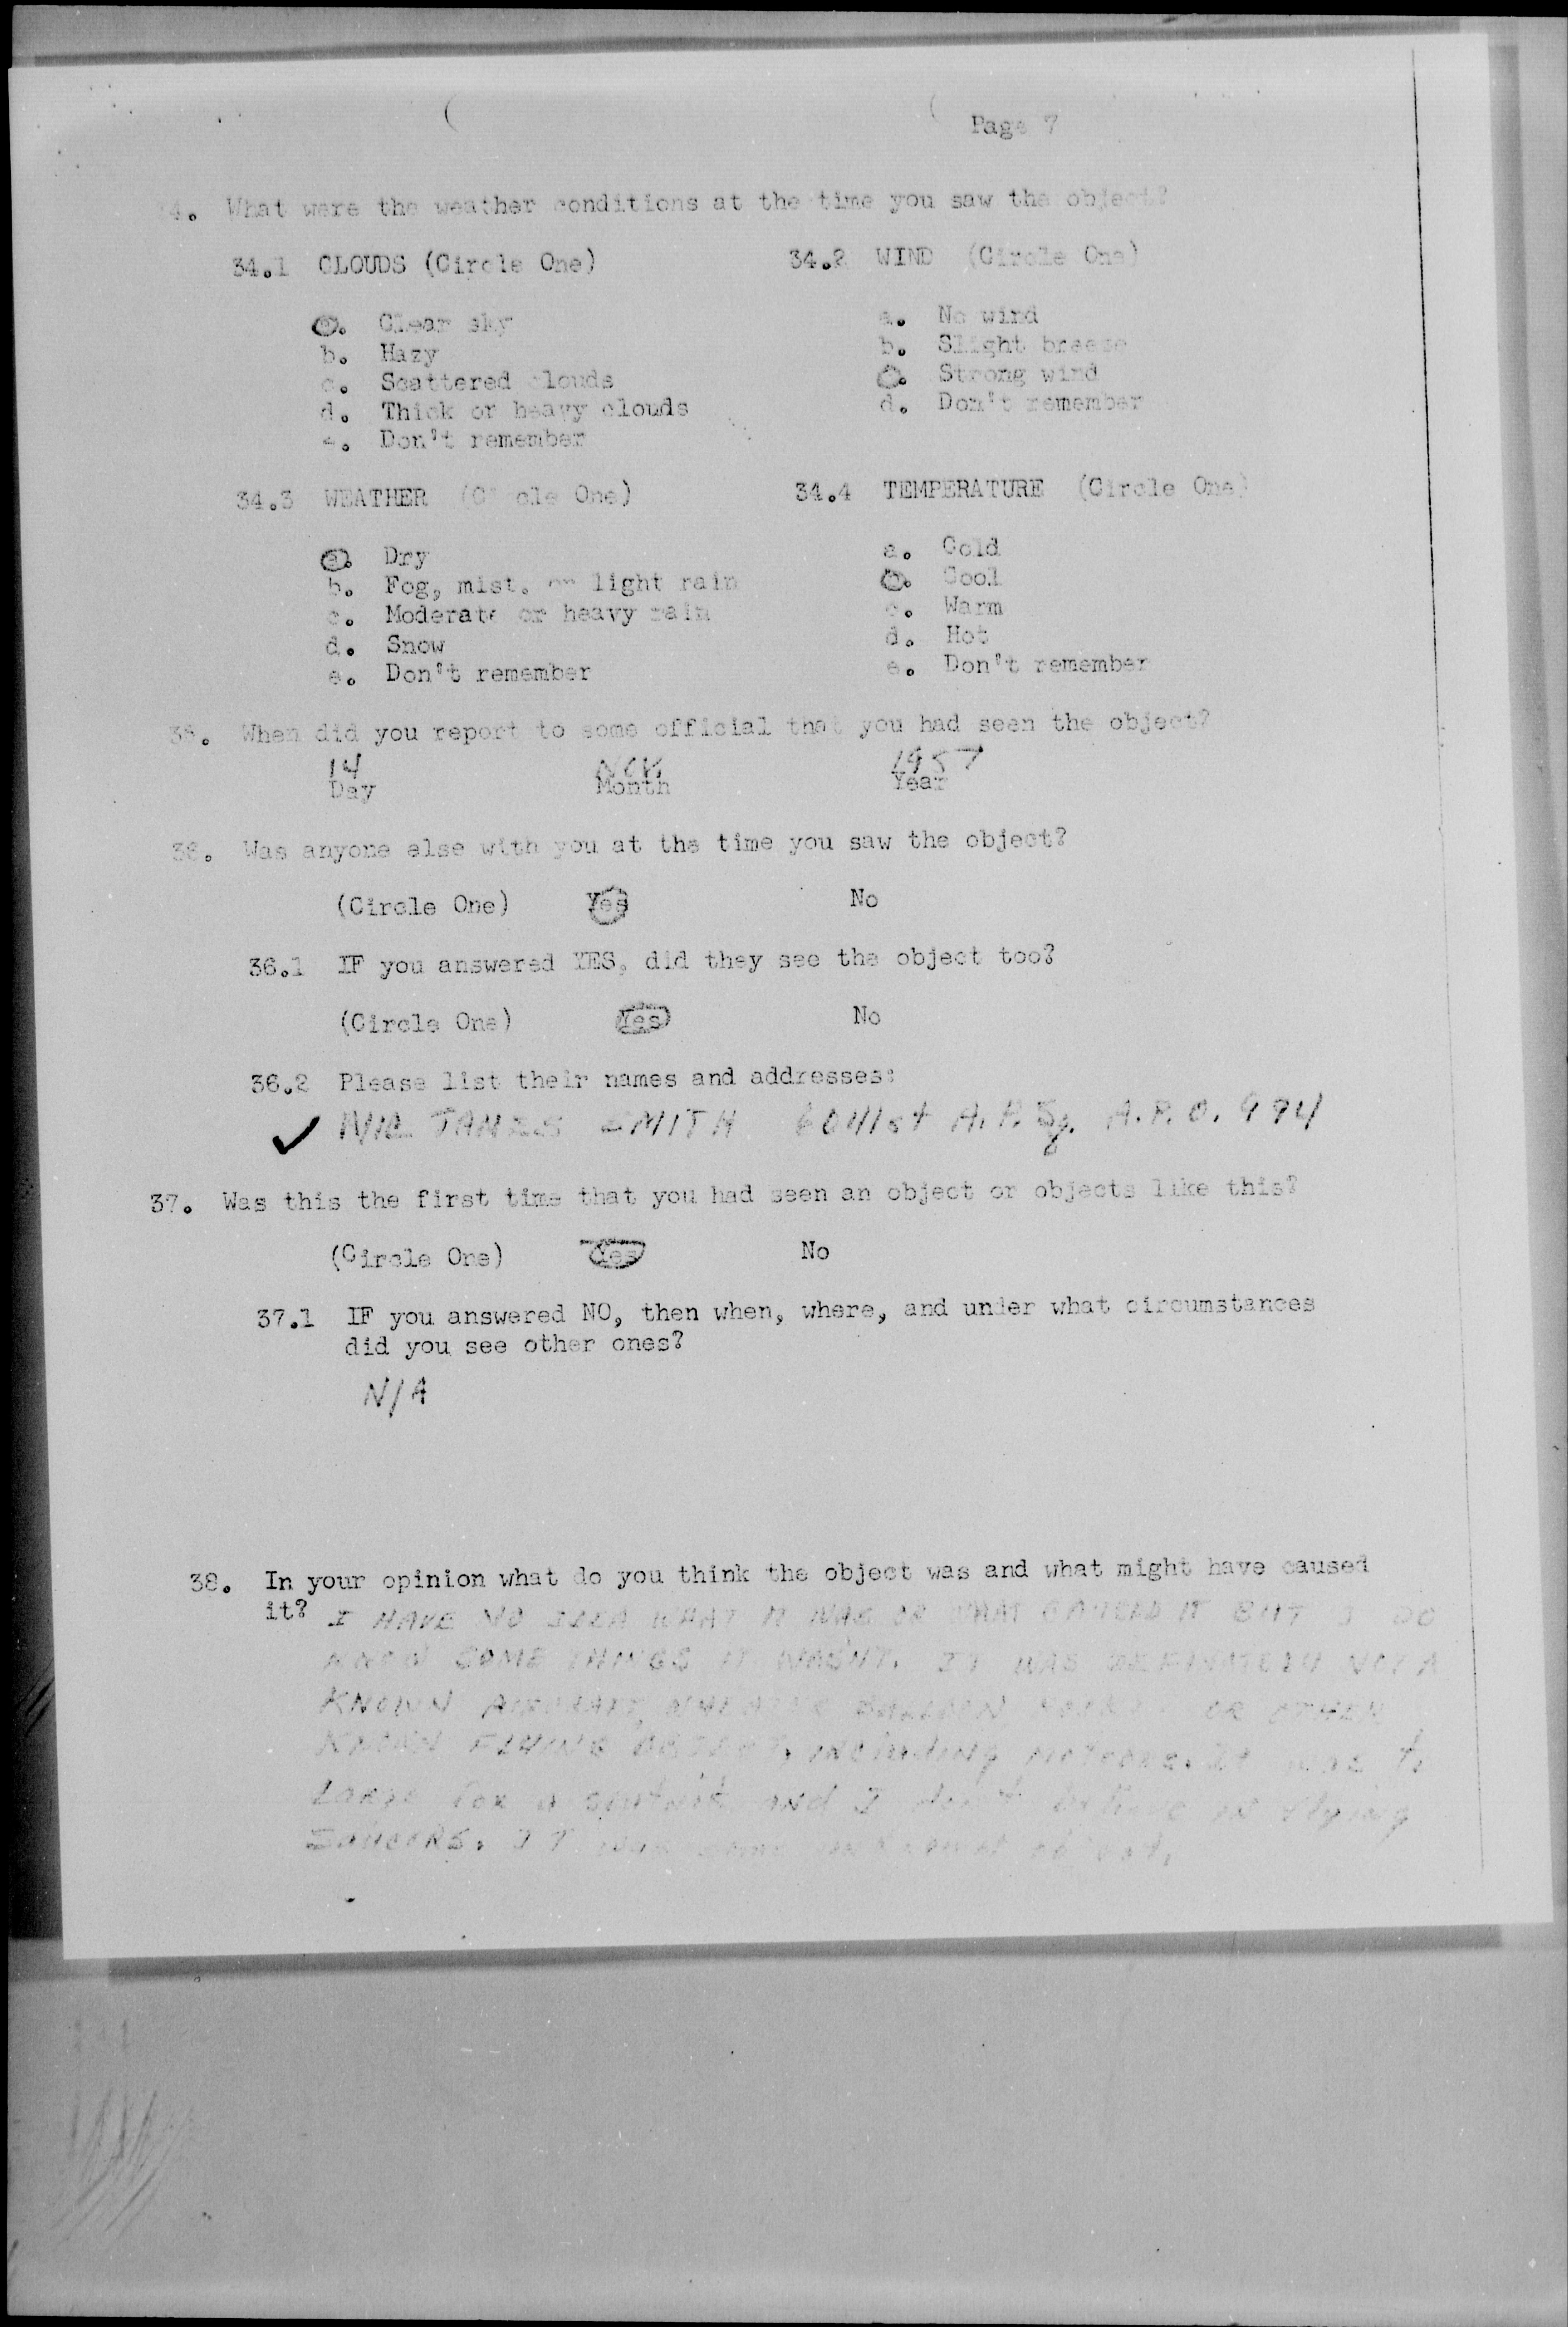 Page 7
4. What were the weather conditions at the time you saw the object?
34.1 CLOUDS (Circle One)
a. Clear sky
b. Hazy
c. Scattered clouds
d. Thick or heavy clouds
e. Don't remember
34.2 WIND (Circle One)
a. No wind
b. Slight breeze
c. Strong wind
d. Don't remember
34.3 WEATHER (Circle One)
a. Dry
b. Fog, mist, or light rain
c. Moderate or heavy rain
d. Snow
e. Don't remember
34.4 TEMPERATURE (Circle One)
a. Cold
b. Cool
c. Warm
d. Hot
e. Don't remember
35. When did you report to some official that you had seen the object?
14 NOV. 1957
Day Month Year
36. Was anyone else with you at the time you saw the object?
(Circle One) Yes No
36.1 IF you answered YES, did they see the object too?
(Circle One) Yes No
36.2 Please list their names and addresses:
✓ JAMES SMITH 6041st A.P. Sq. A.P.O. 994
37. Was this the first time that you had seen an object or objects like this?
(Circle One) Yes No
37.1 IF you answered NO, then when, where, and under what circumstances
did you see other ones?
N/A
38. In your opinion what do you think the object was and what might have caused
it? I HAVE NO IDEA WHAT IT WAS OR WHAT CAUSED IT BUT I DO
KNOW SOME THINGS IT WASN'T. IT WAS DEFINATELY NOT A
KNOWN AIRCRAFT, BALLOON OR OTHER
KNOWN FLYING OBJECT, including meteors. It was
Large for a and I don't believe in flying
SAUCERS. IT was some